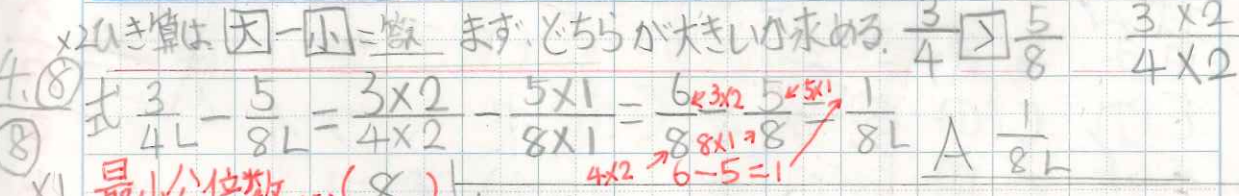 ×2 ひき算は 大-小=答え まず、どちらが大きいか求める。 3/4 > 5/8 3×2/4×2
4、8
式 3/4L - 5/8L = 3×2/4×2 - 5×1/8×1 = 6/8 - 5/8 = 1/8L A 1/8L
3×2 5×1
8×1
8 4×2 6-5=1
×1 最小公倍数…(8)